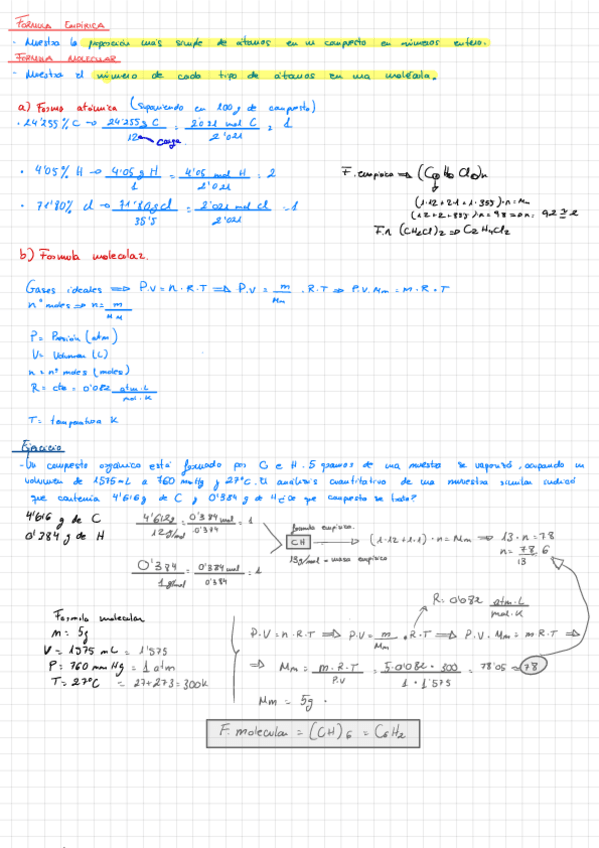 FÓRMULA EMPÍRICA
- Muestra la proporción más simple de átomos en un compuesto en números enteros.
FÓRMULA MOLECULAR
- Muestra el número de cada tipo de átomos en una molécula.
a) Forma atómica (suponiendo en 100g de compuesto)
· 24'255% C → 24'255g C / 12 = 2'021 mol C / 2'021 = 1
· 4'05% H → 4'05 g H / 1 = 4'05 mol H / 2'021 = 2
· 71'80% Cl → 71'80g Cl / 35'5 = 2'021 mol Cl / 2'021 = 1
F. empírica ⇒
F.n (CH2Cl)2 ⇒ C2H4Cl2
b) Formula molecular.
Gases ideales ⇒ P.V = n.R.T ⇒ P.V = m/Mm . R.T ⇒ P.V.Mm = m.R.T
nº moles ⇒ n = m/Mm
P = Presión (atm)
V = Volumen (L)
n = nº moles (moles)
R = cte = 0'082 atm.L / mol.K
T = temperatura K
Ejercicio
- Un compuesto orgánico está formado por C e H. 5 gramos de una muestra se vaporizó, ocupando un
volumen de 1575 mL a 760 mmHg y 27°C. El análisis cuantitativo de una muestra similar indicó
que contenía 4'616 g de C y 0'384 g de H ¿De que compuesto se trata?
4'616 g de C
0'384 g de H
4'612g / 12 g/mol = 0'384 mol / 0'384 = 1
0'384 / 1 g/mol = 0'384 mol / 0'384 = 1
formula empírica.
CH
13g/mol = masa empírica
(1·12+1·1)·n = Mm ⇒ 13·n = 78
n = 78/13 = 6
Formula molecular
m = 5g
V = 1575 mL = 1'575
P = 760 mmHg = 1 atm
T = 27°C = 27+273 = 300K
R = 0'082 atm.L / mol.K
P.V = n.R.T ⇒ P.V = m/Mm . R.T ⇒ P.V.Mm = m R.T ⇒
⇒ Mm = m.R.T / P.V = 5·0'082·300 / 1·1'575 = 78'05 ≈ 78
Mm = 5g ·
F. molecular = (CH)6 = C6H2